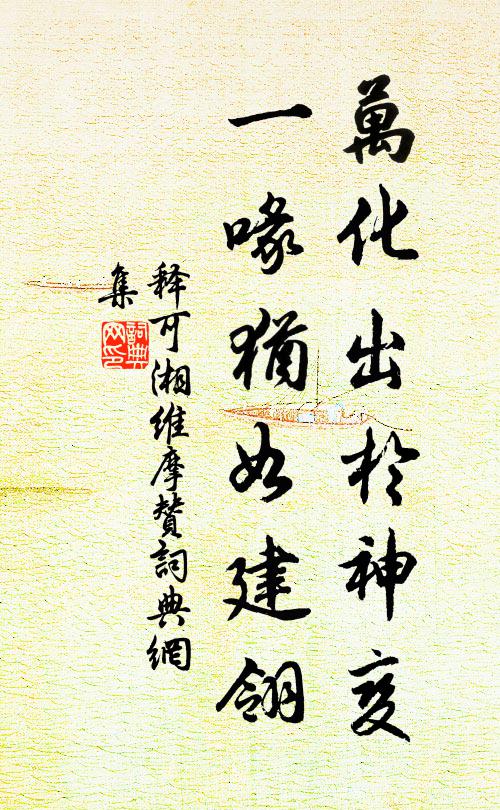 萬化出於神变
一喙猶如建翎
释可湘維摩贊詞典網
集
詞典
网印